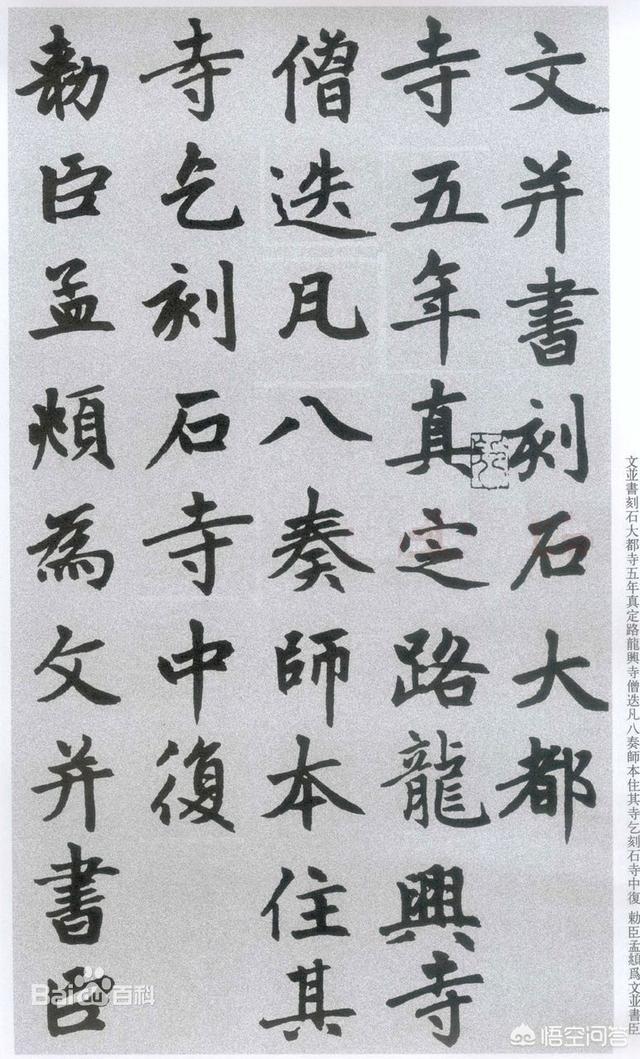 文并書刻石大都
寺五年真定路龍興寺
僧迭凡八奏師本住其
寺乞刻石寺中復
勅臣孟頫為文并書臣
文並書刻石大都寺五年真定路龍興寺僧迭凡八奏師本住其寺乞刻石寺中復 勅臣孟頫爲文並書臣
Bai du 百科
悟空问答